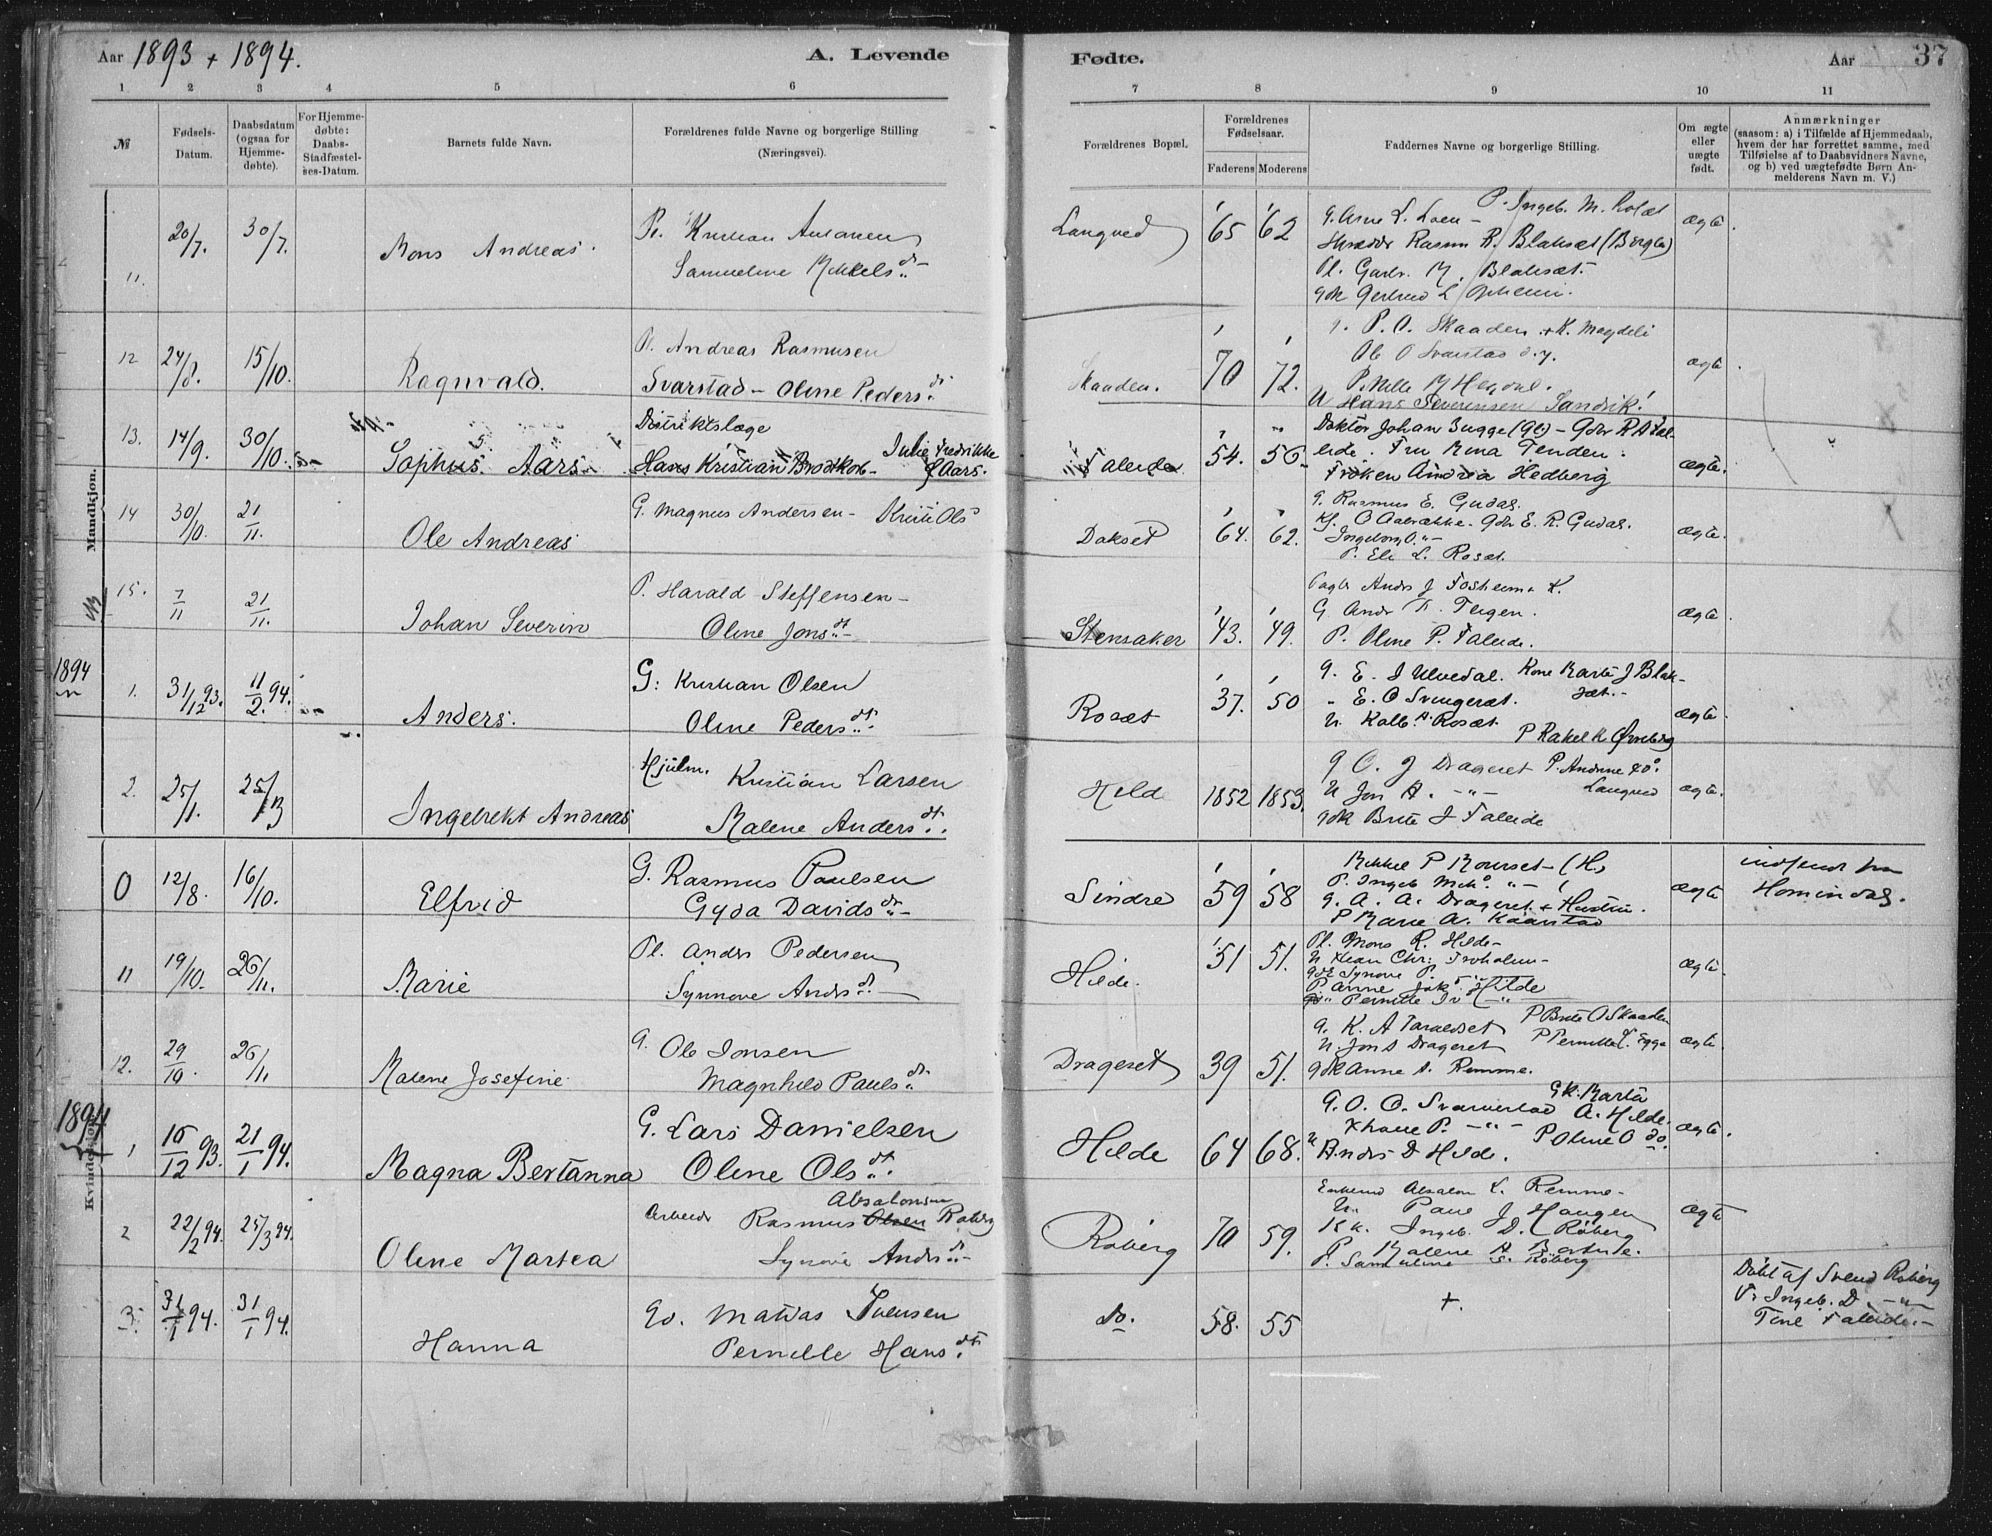 Aar 1893 + 1894. A. Levende Fødte. Aar 37
1 2 3 4 5 6 7 8 9 10 11
№
Fødsels-
Datum.
Daabsdatum
(ogsaa for
Hjemme-
døbte).
For Hjemme-
døbte:
Daabs-
Stadfæstel-
ses-Datum.
Barnets fulde Navn.
Forældrenes fulde Navne og borgerlige Stilling
(Næringsvei).
Forældrenes Bopæl.
Forældrenes
Fødselsaar.
Faderens Moderens
Faddernes Navne og borgerlige Stilling.
Om ægte
eller
uægte
født.
Anmærkninger
(saasom: a) i Tilfælde af Hjemmedaab,
hvem der har forrettet samme, med
Tilføielse af to Daabsvidners Navne,
og b) ved uægtefødte Børn An-
melderens Navn m. V.)
Mandkjøn.
11. 20/7. 30/7. Mons Andreas.
Samueline Mikkels dt
Langved '65 '62
G. Arne L. Loen - P. Ingeb. M.
Rasm R. Blaksæt (Berge)
Pl. Garbr. M. Blaksæt.
gdk Gertrud L
ægte
12 24/8. 15/10. Ragnvald.
Pl. Andreas Rasmusen
Svarstad - Oline Peders dt
Skaaden. '70 '72.
P. O. Skaaden + K. Magdeli
Ole O Svarstad
U Hans Severinsen Sandvik!
ægte
13. 14/9. 30/10. Sophus Aars
Distriktslæge
Hans Kristian Brodtkorb - Julie Fredrikke
f Aars.
Faleide 54. 56
Doktor Johan Sugge (90) - Gdbr R A Fal-
eide. Fru Mina Tenden.
Frøken Andrea Hedberg
ægte.
14 30/10. 21/11. Ole Andreas
G. Magnus Andersen - Kristi Ols dt
Dokset '64. '62.
G. Rasmus E. Gudal.
O Aabrække. Gdbr E. R. Gudal.
Ingeborg O. "-
P. Eli L. Rosæt.
ægte.
15. 7/11 21/11. Johan Severin
P. Harald Steffensen -
Oline Jons dt -
Stensaker '43. '49.
Anders J Fosheim + K.
G Andr Teigen.
P. Oline P. Faleide.
ægte
1894
1. 31/12 93. 11/2. 94. Anders.
G: Kristian Olsen
Oline Peders dt
Rosæt '37. '50
G. E. J Ulvedal. Kone Marte J Blak-
sæt. -
" E. O Svingeset.
U. Kolb. A Rosæt.
P Rakel K Øvreberg
ægte.
2. 25/1. 25/3 Ingebrekt Andreas
Hjulm. Kristian Larsen
Malene Anders dt.
Hilde 1852 1853.
G O. J Drageset P. Andrine
U Jon A. -"- Langved
gdk Brite J Faleide
ægte.
Kvindekjøn.
12/8. 16/10. Elfrid
G. Rasmus Paulsen
Gyda Davids dt -
Sindre '59 '58
Mikkel P Mourset - (H)
P. Ingeb Mik dt. "- (
G. A. A. Drageset + Hustru.
P Marie A. Kaarstad
ægte
indsendt fra
Hornindal.
11 19/10. 26/11. Marie
Pl. Anders Pedersen
Synnøve Anders dt. -
Hilde. '51 51.
Pl. Mons R. Hilde -
gdk Synøve P.
P. Anne Jak dt Hilde
Pernille Iv -"-
ægte.
12. 29/10. 26/11 Malene Josefine
G. Ole Jonsen
Magnhild Pauls dt.
Drageset 39 51.
G. K. A Taraldset P Brite O Skaaden
U. Jon A Drageset P Pernille L. Egge
gdk Anne A. Remme.
ægte.
1894
1 16/12 93. 21/1 94. Magna Bertanna
G. Lars Danielsen
Oline Ols dt.
Hilde 64 68.
GK. Marta
G. O. O. Svarverstad A. Hilde.
P. -"- P Oline O do.
U Anders D Hilde.
ægte.
2 22/2 94. 25/3 94. Oline Martea
Absalonsen
Arbeider Rasmus Olsen Roberg
Synøve Anders dt -
Roberg 70 59.
Enkemd Absalon L. Remme -
U. Paul J Haugen
Kk. Ingeb. D. Røberg
P. Malene A
P. Samueline S. Røberg
ægte
3. 31/1 94. 31/1 94. Hanna
Gd. Matias Svensen
Pernille Hans dt.
do. 58. 55
+.
Døbt af Svend Roberg
V. Ingeb. D. -"-
Tine Faleide. -